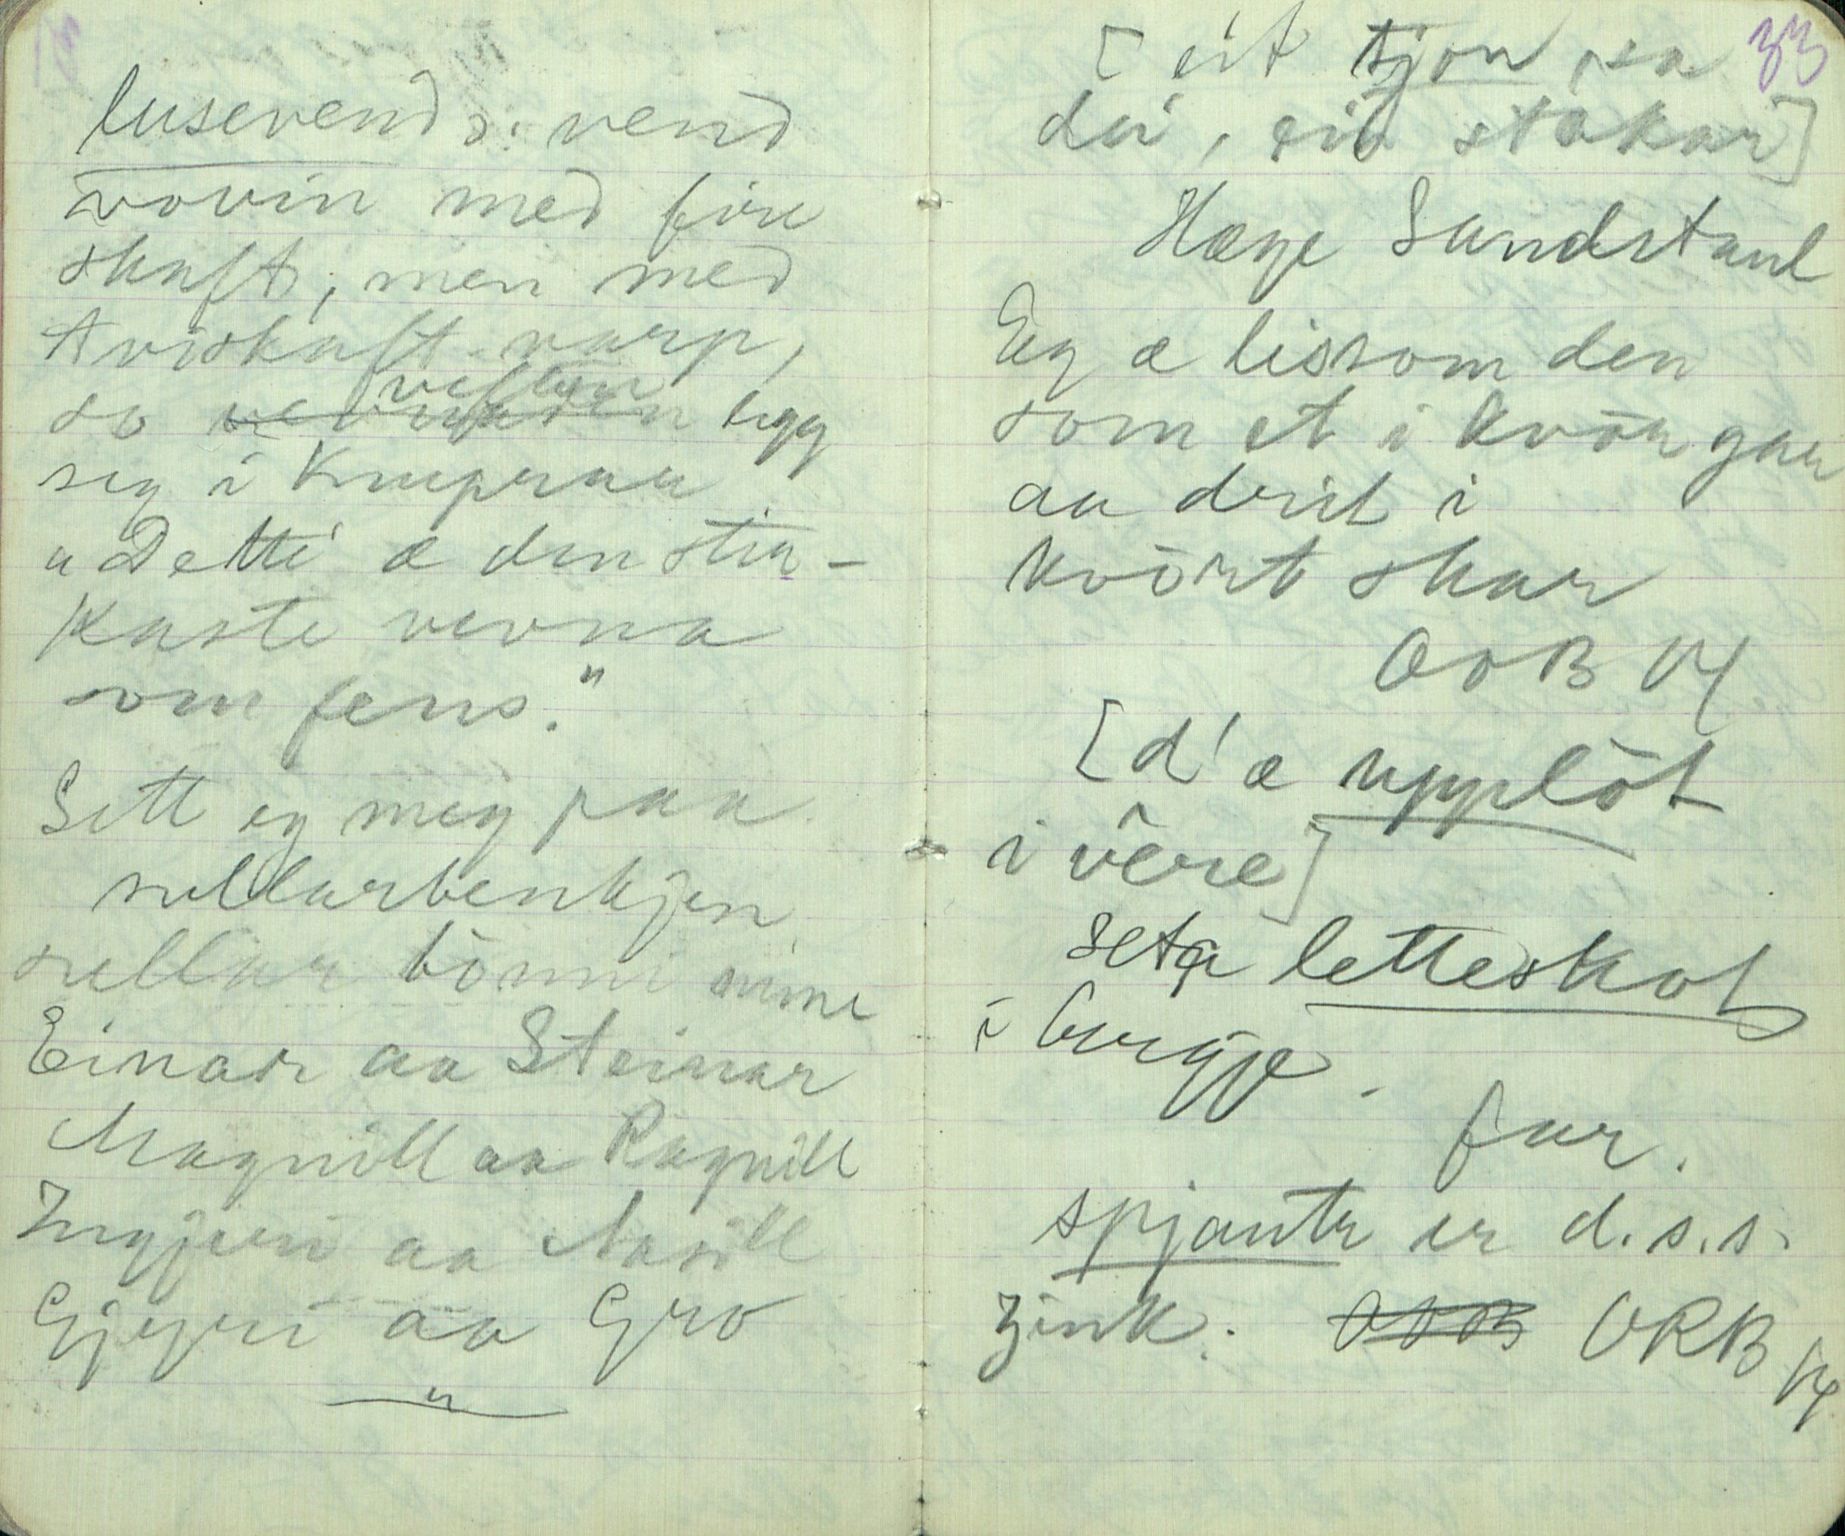 lusevend ɔ: vend
vovin med fire
skaft, men med
tviskaft varp,
so veften legg
seg i Kruepraa
"Dette æ den stin-
kaste verna
som fens."
Sett eg meg paa
sullarbenkjen
sullar bönni mine
Einar aa Steinar
Magnill aa Ragnill
Ingjeri aa Aasill
Gjyri aa Gro
33
[eit tjon pa
dei, ein stakar]
Hæge Sundstaul
Eg æ lissom den
som et i kvör gar
aa drit i
kvört skar
OOB 14
[d'æ upplöt
i vêre]
seta letteskot
i byrgje.
far.
spjautr er d.s.s.
zink. OOB ORB 14